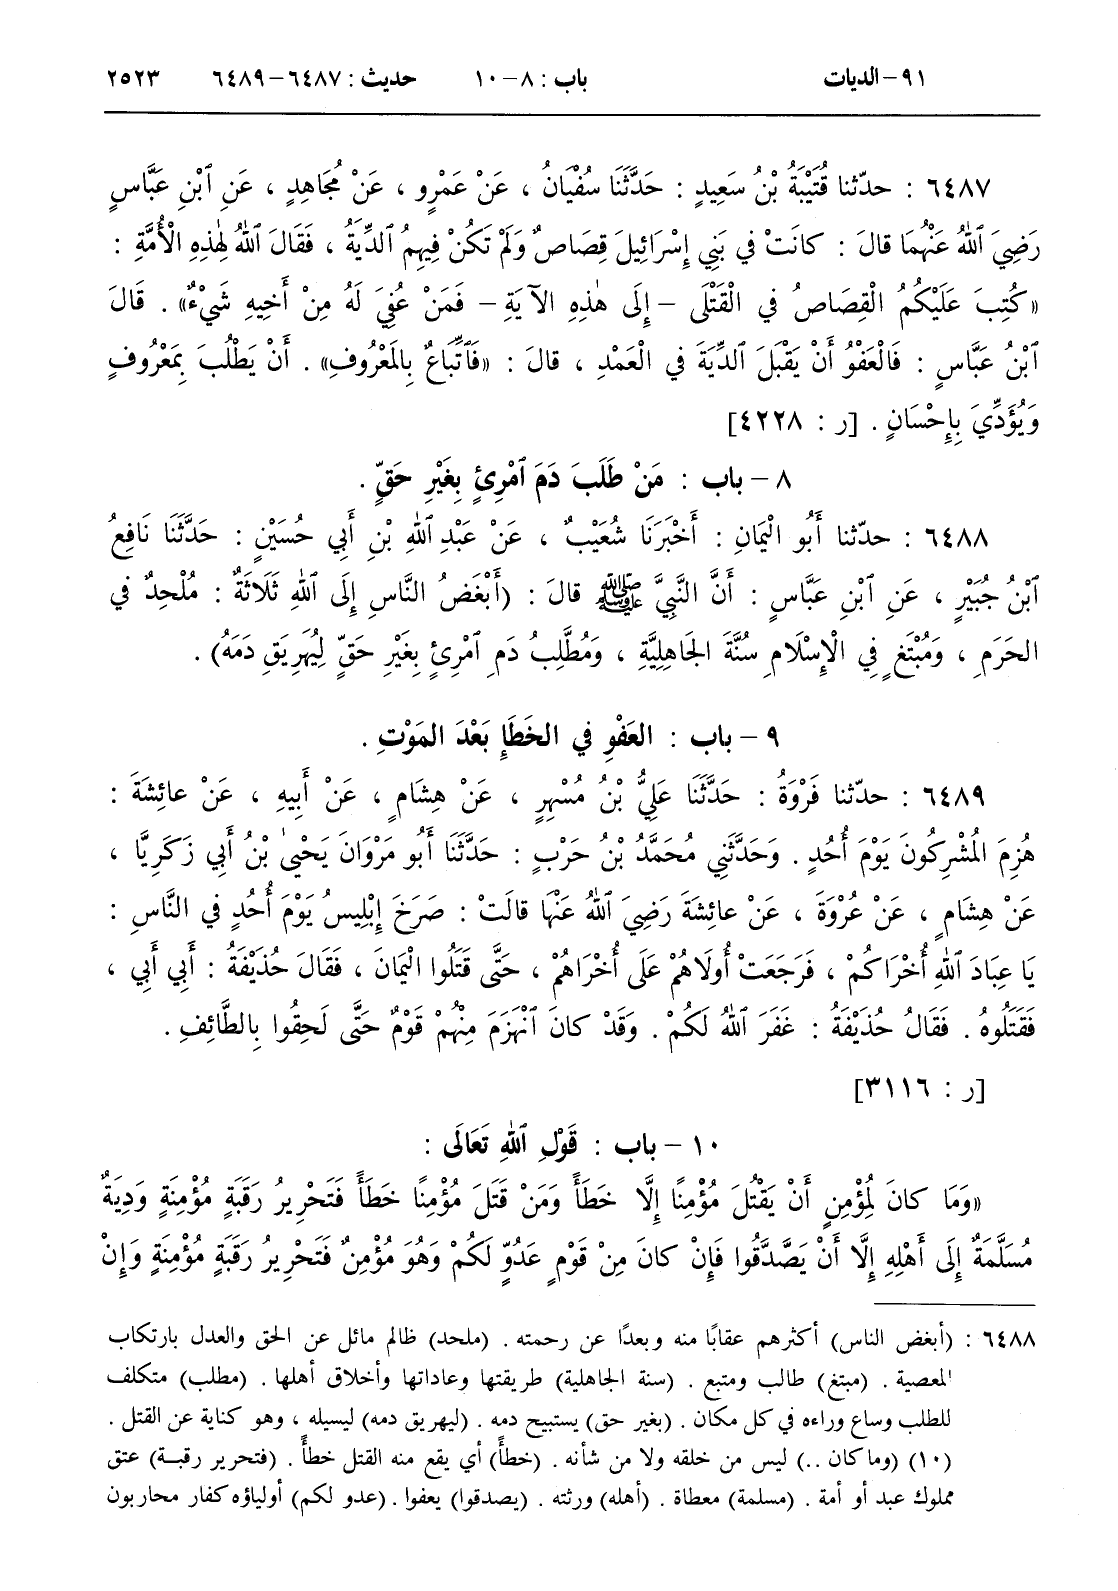 ٩١- الديات باب : ٨-١٠ حديث : ٦٤٨٧-٦٤٨٩ ٢٥٢٣
٦٤٨٧ : حدّثنا قُتَيْبَةُ بْنُ سَعِيدٍ : حَدَّثَنَا سُفْيَانُ ، عَنْ عَمْرٍو ، عَنْ مُجَاهِدٍ ، عَنِ ٱبْنِ عَبَّاسٍ
رَضِيَ ٱللهُ عَنْهُمَا قالَ : كانَتْ في بَنِي إِسْرَائِيلَ قِصَاصٌ وَلَمْ تَكُنْ فِيهِمُ الدِّيَةُ ، فَقَالَ ٱللهُ لِهٰذِهِ الْأُمَّةِ :
«كُتِبَ عَلَيْكُمُ الْقِصَاصُ في الْقَتْلَى – إِلَى هٰذِهِ الآيَةِ – فَمَنْ عُفِيَ لَهُ مِنْ أَخِيهِ شَيْءٌ» . قالَ
ٱبْنُ عَبَّاسٍ : فَالْعَفْوُ أَنْ يَقْبَلَ ٱلدِّيَةَ في الْعَمْدِ ، قالَ : «فَٱتِّبَاعٌ بِالمَعْرُوفِ» . أَنْ يَطْلُبَ بِمَعْرُوفٍ
وَيُؤَدِّيَ بِإِحْسَانٍ . [ر : ٤٢٢٨]
٨ – باب : مَنْ طَلَبَ دَمَ ٱمْرِئٍ بِغَيْرِ حَقٍّ .
٦٤٨٨ : حدّثنا أَبُو الْيَمَانِ : أَخْبَرَنَا شُعَيْبٌ ، عَنْ عَبْدِ ٱللهِ بْنِ أَبِي حُسَيْنٍ : حَدَّثَنَا نَافِعُ
ٱبْنُ جُبَيْرٍ ، عَنِ ٱبْنِ عَبَّاسٍ : أَنَّ النَّبِيَّ ﷺ قالَ : (أَبْغَضُ النَّاسِ إِلَى ٱللهِ ثَلَاثَةٌ : مُلْحِدٌ في
الحَرَمِ ، وَمُبْتَغٍ في الْإِسْلَامِ سُنَّةَ الجَاهِلِيَّةِ ، وَمُطَّلِبُ دَمِ ٱمْرِئٍ بِغَيْرِ حَقٍّ لِيُهَرِيقَ دَمَهُ) .
٩ – باب : العَفْوِ في الخَطَإِ بَعْدَ المَوْتِ .
٦٤٨٩ : حدّثنا فَرْوَةُ : حَدَّثَنَا عَلِيُّ بْنُ مُسْهِرٍ ، عَنْ هِشَامٍ ، عَنْ أَبِيهِ ، عَنْ عائِشَةَ :
هُزِمَ المُشْرِكُونَ يَوْمَ أُحُدٍ . وَحَدَّثَنِي مُحَمَّدُ بْنُ حَرْبٍ : حَدَّثَنَا أَبُو مَرْوَانَ يَحْيىٰ بْنُ أَبِي زَكَرِيَّا ،
عَنْ هِشَامٍ ، عَنْ عُرْوَةَ ، عَنْ عائِشَةَ رَضِيَ ٱللهُ عَنْهَا قالَتْ : صَرَخَ إِبْلِيسُ يَوْمَ أُحُدٍ في النَّاسِ :
يَا عِبَادَ ٱللهِ أُخْرَاكُمْ ، فَرَجَعَتْ أُولَاهُمْ عَلَى أُخْرَاهُمْ ، حَتَّى قَتَلُوا الْيَمَانَ ، فَقَالَ حُذَيْفَةُ : أَبِي أَبِي ،
فَقَتَلُوهُ . فَقَالَ حُذَيْفَةُ : غَفَرَ ٱللهُ لَكُمْ . وَقَدْ كانَ ٱنْهَزَمَ مِنْهُمْ قَوْمٌ حَتَّى لَحِقُوا بِالطَّائِفِ .
[ر : ٣١١٦]
١٠ – باب : قَوْلِ ٱللهِ تَعَالَى :
«وَمَا كانَ لِمُؤْمِنٍ أَنْ يَقْتُلَ مُؤْمِنًا إِلَّا خَطَأً وَمَنْ قَتَلَ مُؤْمِنًا خَطَأً فَتَحْرِيرُ رَقَبَةٍ مُؤْمِنَةٍ وَدِيَةٌ
مُسَلَّمَةٌ إِلَى أَهْلِهِ إِلَّا أَنْ يَصَّدَّقُوا فَإِنْ كانَ مِنْ قَوْمٍ عَدُوٍّ لَكُمْ وَهُوَ مُؤْمِنٌ فَتَحْرِيرُ رَقَبَةٍ مُؤْمِنَةٍ وَإِنْ
٦٤٨٨ : (أبغض الناس) أكثرهم عقابًا منه وبعدًا عن رحمته . (ملحد) ظالم مائل عن الحق والعدل بارتكاب
المعصية . (مبتغ) طالب ومتبع . (سنة الجاهلية) طريقتها وعاداتها وأخلاق أهلها . (مطلب) متكلف
للطلب وساع وراءه في كل مكان . (بغير حق) يستبيح دمه . (ليهريق دمه) ليسيله ، وهو كناية عن القتل .
(١٠) (وما كان ..) ليس من خلقه ولا من شأنه . (خطأً) أي يقع منه القتل خطأً . (فتحرير رقبة) عتق
مملوك عبد أو أمة . (مسلمة) معطاة . (أهله) ورثته . (يصدقوا) يعفوا . (عدو لكم) أولياؤه كفار محاربون